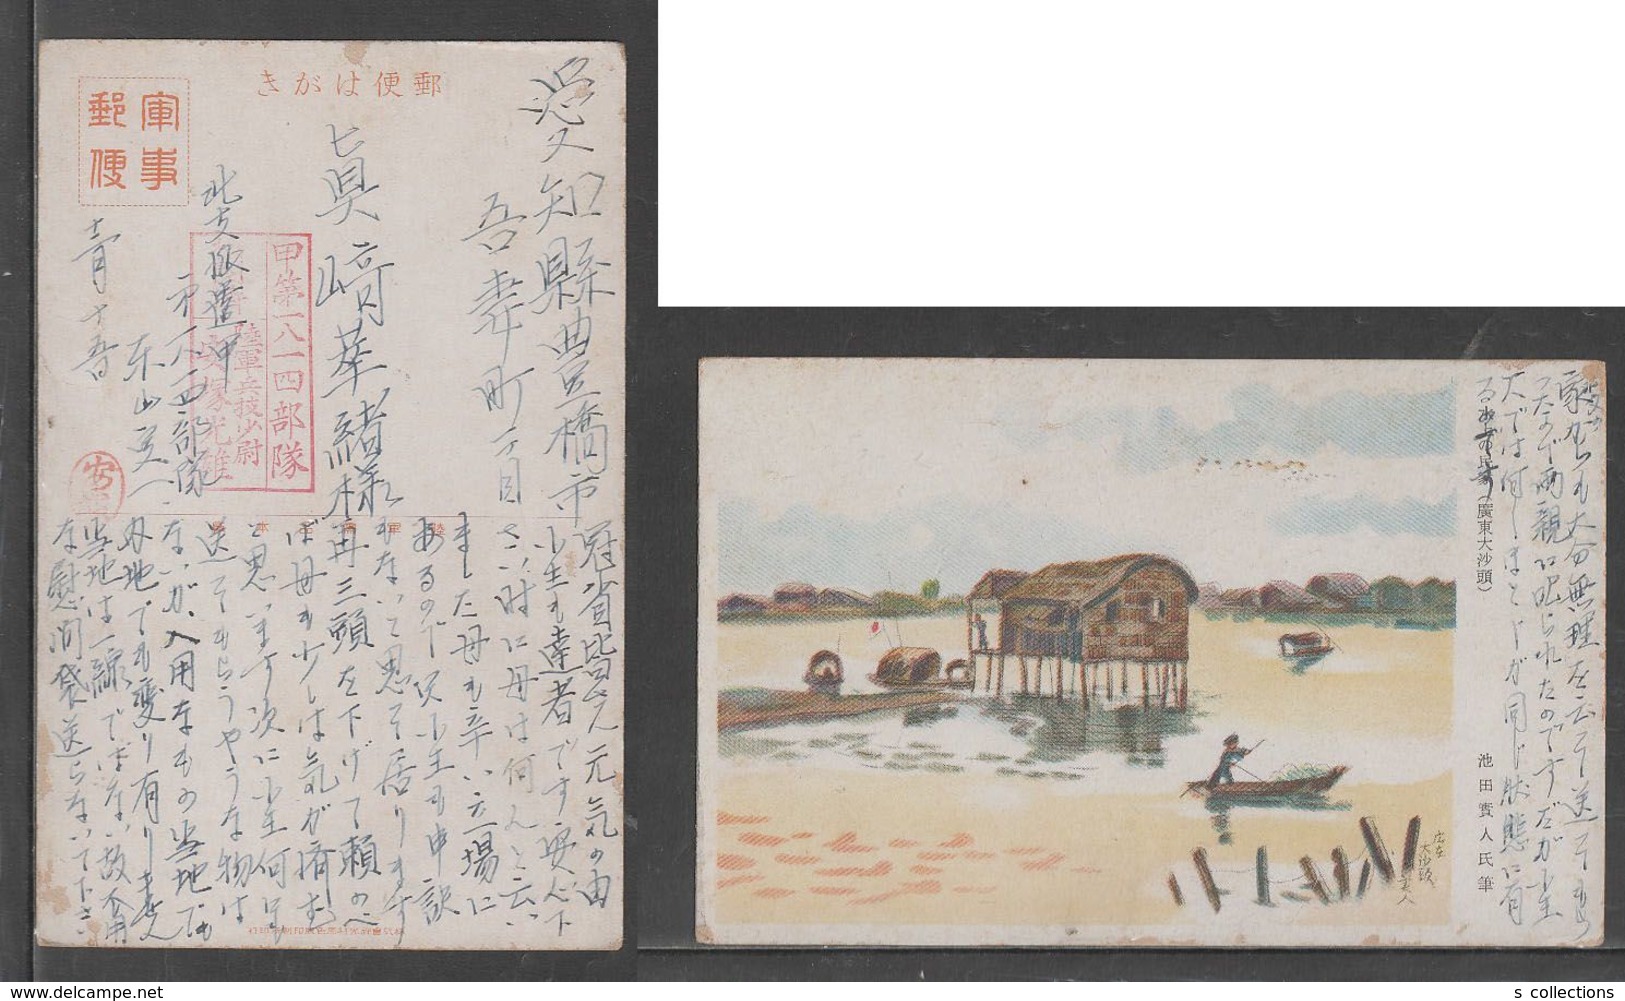 郵便はがき
軍事
郵便
愛知縣豊橋市
吾妻町一丁目
眞崎華緒様
北支派遣甲
第一八一四部隊
東山
甲第一八一四部隊
陸軍兵技少尉
安塚光雄
冠省皆々元気の由
小生も達者です安心下
さい時に母は何んと云い
ました母も辛い立場に
あるので又小生も申訳
もないと思って居ります
再三頭を下げて頼めべ
ば母も少しは気が済む
と思います次に小生何も
送ってもらうやうな物は
ないが入用なもの当地でも
内地でも変り有りません
当地は一線でばない故今度
な慰問袋送らないで下さ
家からも大分無理を云って送っても
天ので両親に叱られたのですだが小生
大では何ーほとんどが同じ状態に有
る
水上の民家(廣東大沙頭)
池田實人氏筆
s collections